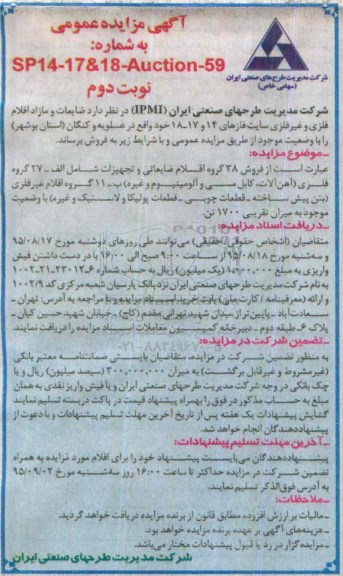 آگهی مزایده عمومی
به شماره:
SP14-17&18-Auction-59
نوبت دوم
شرکت مدیریت طرح‌های صنعتی ایران
(سهامی خاص)
شرکت مدیریت طرحهای صنعتی ایران (IPMI) در نظر دارد ضایعات و مازاد اقلام
فلزی و غیرفلزی سایت فازهای ۱۴ و ۱۷-۱۸ خود واقع در عسلویه و کنگان (استان بوشهر)
را با وضعیت موجود از طریق مزایده عمومی و با شرایط زیر به فروش برساند.
ـ موضوع مزایده:
عبارت است از فروش ۳۸ گروه اقلام ضایعاتی و تجهیزات شامل الف ـ ۲۷ گروه
فلزی (آهن آلات، کابل مسی و آلومینیوم و غیره) ب ـ ۱۱ گروه اقلام غیرفلزی
(بتن پیش ساخته ـ قطعات چوبی ـ قطعات پولیکا و لاستیک و غیره) با وضعیت
موجود به میزان تقریبی ۱۷۰۰ تن.
ـ دریافت اسناد مزایده:
متقاضیان (اشخاص حقوقی/حقیقی) می‌توانند طی روزهای دوشنبه مورخ ۹۵/۰۸/۱۷
و سه‌شنبه مورخ ۹۵/۰۸/۱۸ از ساعت ۹:۰۰ صبح الی ۱۶:۰۰ با در دست داشتن فیش
واریزی به مبلغ ۱,۰۰۰,۰۰۰ (یک میلیون) ریال به حساب شماره
به نام شرکت مدیریت طرحهای صنعتی ایران نزد بانک پارسیان شعبه مرکزی کد ۱۰۰۲/۹
و ارائه (معرفینامه / کارت ملی) بابت خرید اسناد مزایده و با مراجعه به آدرس: تهران ـ
سعادت‌آباد ـ پایین‌تر از میدان شهید تهرانی مقدم (کاج) ـ خیابان شهید حسین کیان ـ
پلاک ۶ ـ طبقه دوم ـ دبیرخانه کمیسیون معاملات اسناد مزایده را دریافت نمایند.
ـ تضمین شرکت در مزایده:
به منظور تضمین شرکت در مزایده، متقاضیان بایستی ضمانتنامه معتبر بانکی
(غیرمشروط و غیرقابل برگشت) به میزان ۳۰۰,۰۰۰,۰۰۰ (سیصد میلیون) ریال و یا
چک بانکی در وجه شرکت مدیریت طرحهای صنعتی ایران و یا فیش واریز نقدی به همان
مبلغ به حساب مذکور در فوق را بهمراه پیشنهاد قیمت در پاکت دربسته تسلیم نمایند
گشایش پیشنهادات یک هفته پس از تاریخ آخرین مهلت تسلیم پیشنهادات و با دعوت از
پیشنهاددهندگان انجام خواهد شد.
ـ آخرین مهلت تسلیم پیشنهادات:
پیشنهاددهندگان می‌بایست پیشنهاد خود را برای اقلام مورد مزایده به همراه
تضمین شرکت در مزایده حداکثر تا ساعت ۱۶:۰۰ روز سه‌شنبه مورخ ۹۵/۰۹/۰۲
به آدرس فوق‌الذکر تسلیم نمایند.
ـ ملاحظات:
ـ مالیات بر ارزش افزوده مطابق قانون از برنده مزایده دریافت خواهد گردید.
ـ هزینه‌های آگهی بر عهده برنده مزایده خواهد بود.
ـ مزایده گزار در رد یا قبول پیشنهادات مختار می‌باشد.
شرکت مدیریت طرحهای صنعتی ایران